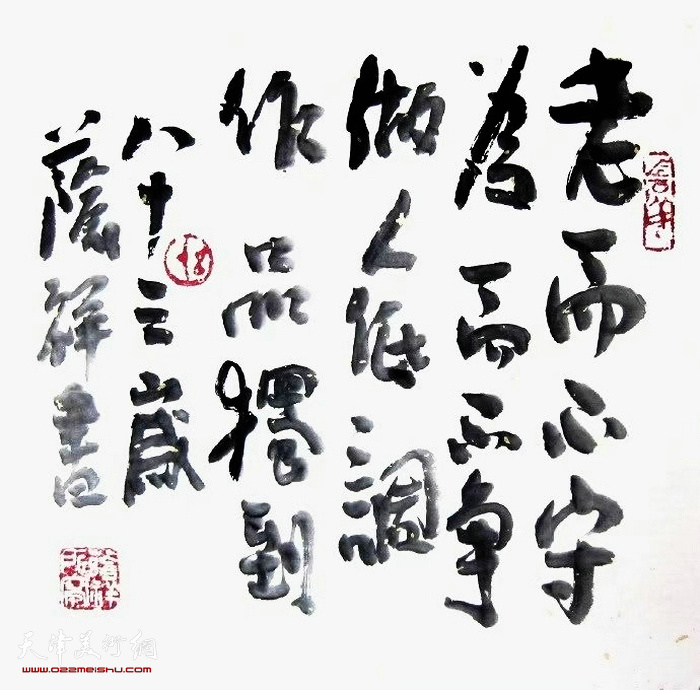 老而不守
為而不争
做人低調
作品獨到
八十三歲
蔭祥書
天津美術網
www.022meishu.com